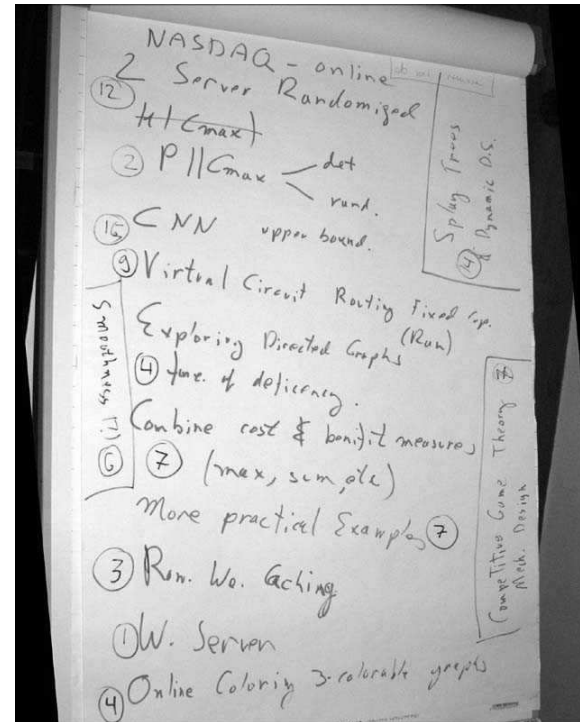 NASDAQ - online
2 Server Randomized
12
H | Cmax)
2 P || Cmax det
rand.
15 CNN upper bound.
9 Virtual Circuit Routing Fixed cap.
(Ran)
Exploring Directed Graphs
4 func. of deficency.
Combine cost & benifit measures
7 (max, sum, etc)
More practical Examples 7
3 Ran. We. Caching
1 W. Server
4 Online Coloring 3-colorable graphs
Splay Trees
4 & Dynamic D.S.
Smoothness (?) 6
Competitive Game Theory 7
Mech. Design